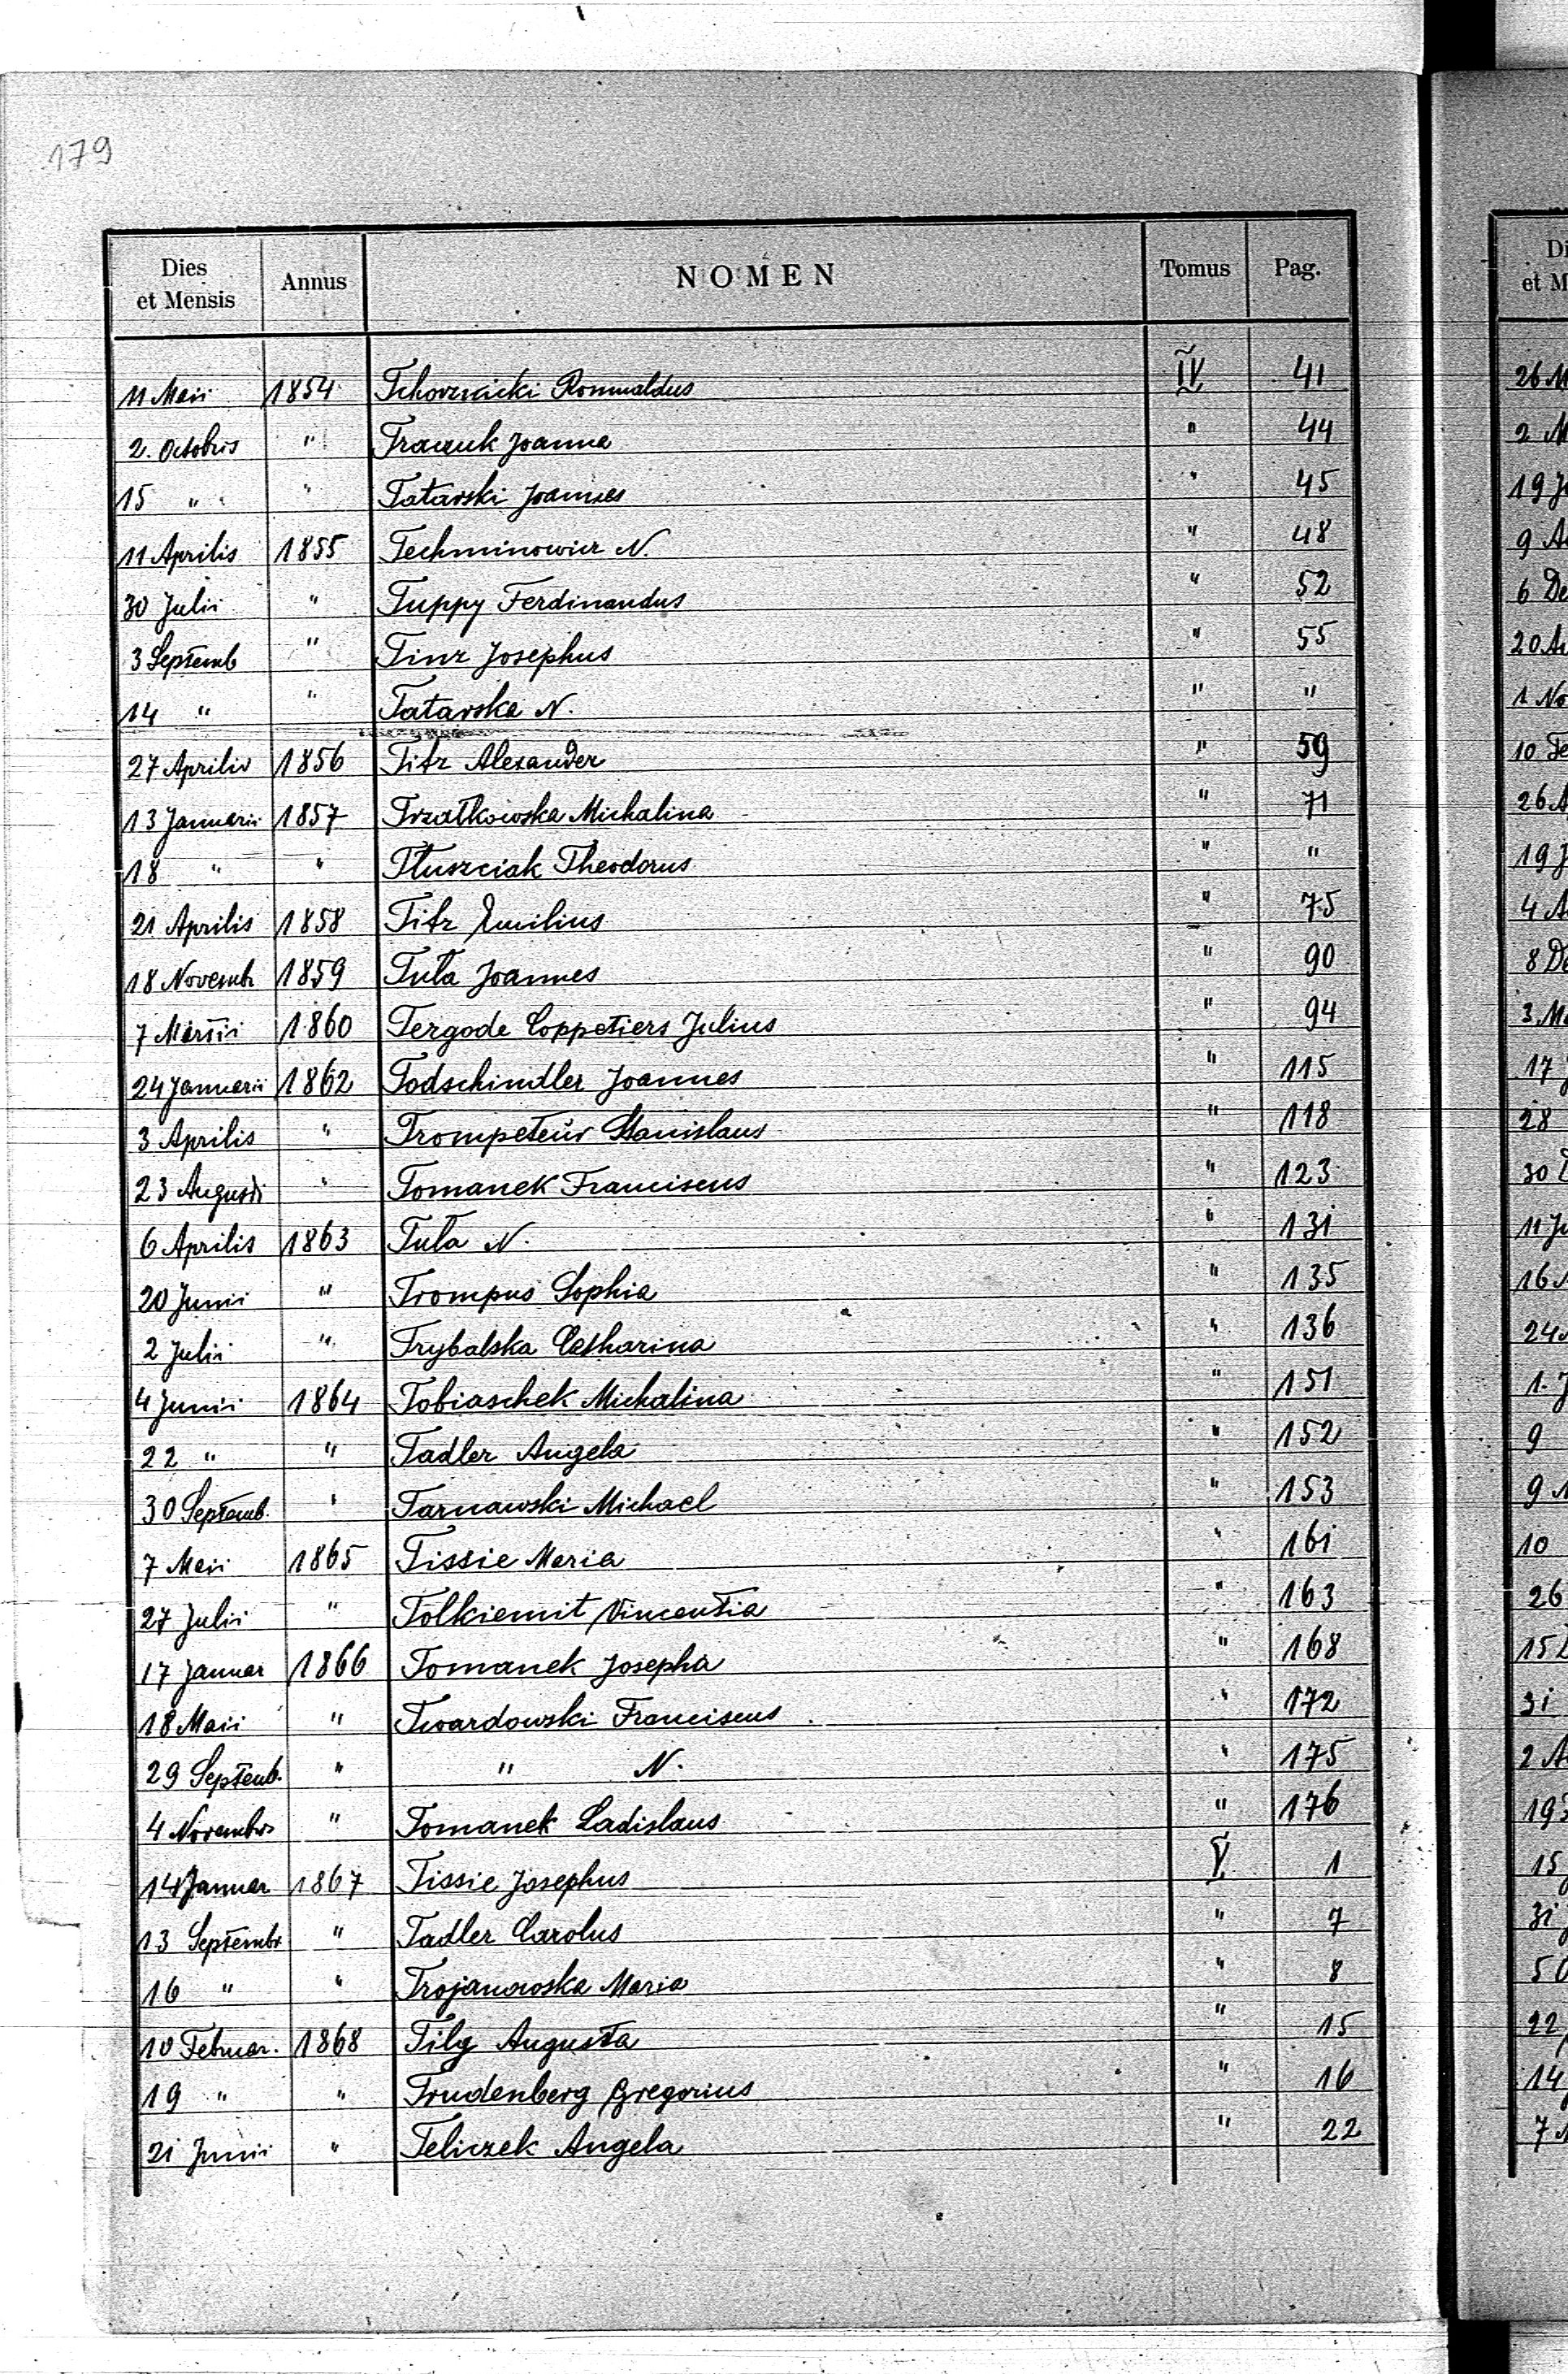 179
Dies et Mensis Annus NOMEN Tomus Pag.
11 Maii 1854 Tchorznicki Romualdus IV 41
2. Octobris " Joanna " 44
15 " " Tatarski Joannes " 45
11 Aprilis 1855 Techminowicz N. " 48
30 Julii " Tuppy Ferdinandus " 52
3 Septemb " Tinz Josephus " 55
14 " " Tatarska N. " "
27 Aprilis 1856 Titz Alexander " 59
13 Januarii 1857 Trzatkowska Michalina " 71
18 " " Tłuszciak Theodorus " "
21 Aprilis 1858 Titz Emilius " 75
18 Novemb 1859 Tuła Joannes " 90
7 Martii 1860 Tergode Coppetiers Julius " 94
24 Januarii 1862 Todschindler Joannes " 115
3 Aprilis " Trompeteur Stanislaus " 118
23 Augusti " Tomanek Franciscus " 123
6 Aprilis 1863 Tuła N. " 131
20 Junii " Trompus Sophia " 135
2 Julii " Trybalska Catharina " 136
4 Junii 1864 Tobiaschek Michalina " 151
22 " " Tadler Angela " 152
30 Septemb. " Tarnawski Michael " 153
7 Maii 1865 Tissie Maria " 161
27 Julii " Tolkiemit Vincentia " 163
17 Januar 1866 Tomanek Josepha " 168
18 Maii " Twardowski Franciscus " 172
29 Septemb. " " N. " 175
4 Novembris " Tomanek Ladislaus " 176
14 Januar 1867 Tissie Josephus V 1
13 Septembr " Tadler Carolus " 7
16 " " Trojanowska Maria " 8
10 Februar. 1868 Tilg Augusta " 15
19 " " Trudenberg Gregorius " 16
21 Junii " Teliczek Angela " 22